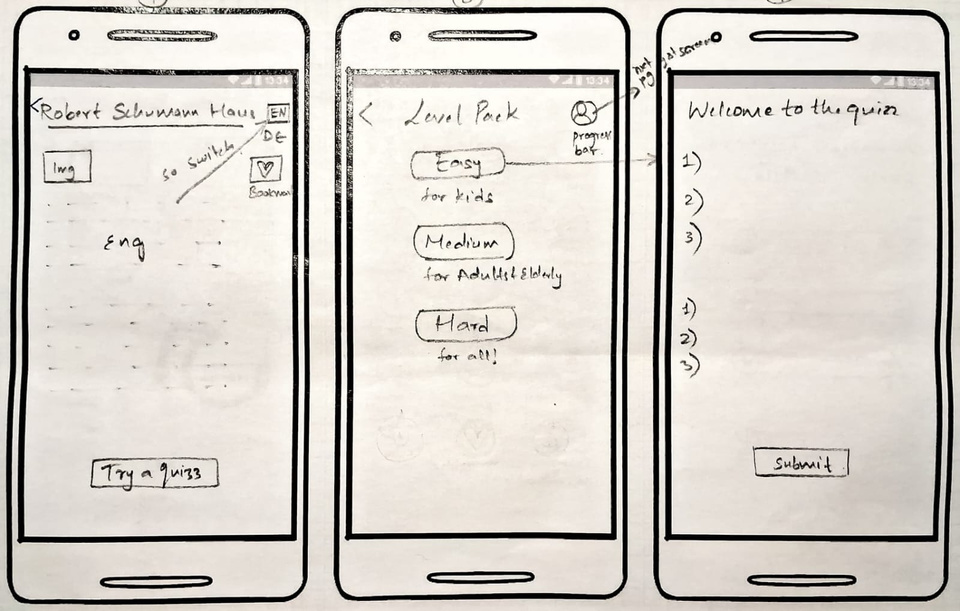 < Robert Schumann Haus EN
DE
so switch.
Img
Bookma
Eng
Try a quizz
< Level Pack
progress
bar.
Easy
for kids
Medium
for Adults & Elderly
Hard
for all!
Welcome to the quizz
1)
2)
3)
1)
2)
3)
Submit